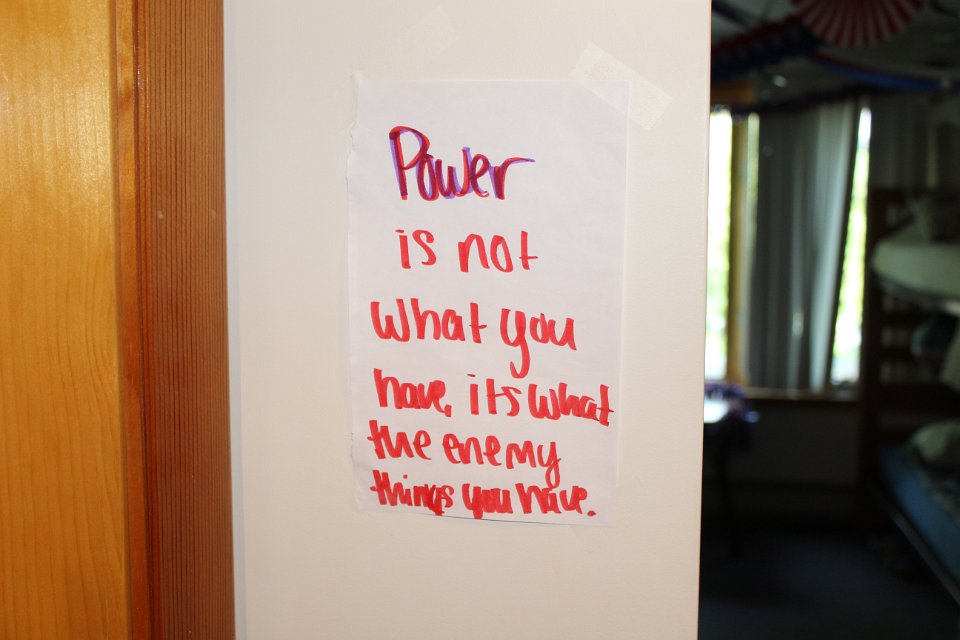 Power
is not
what you
have, its what
the enemy
things you have.